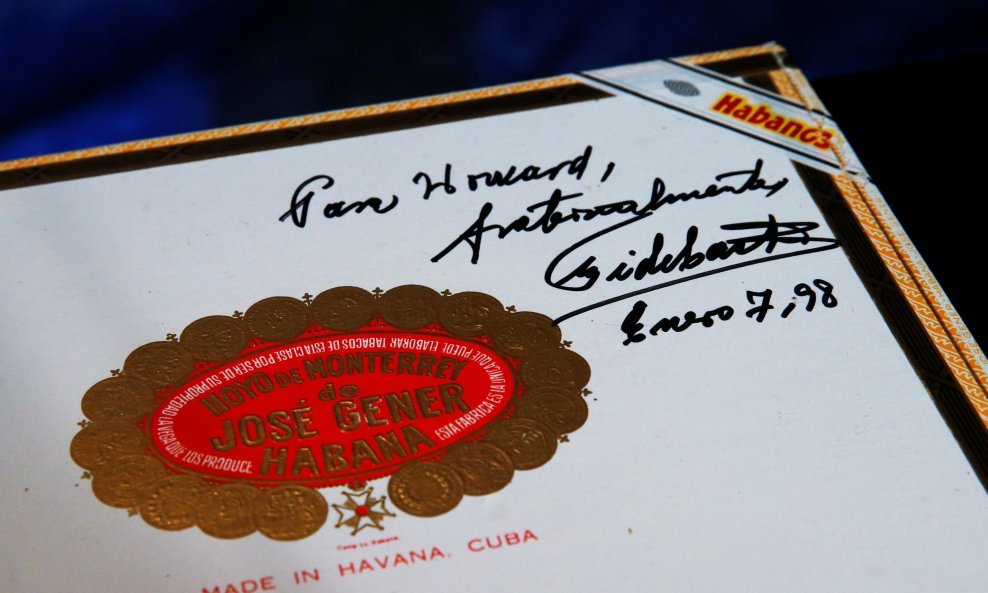 Habanos
Para Howard,
fraternalmente,
Enero 7, 98
LA VERA QUE LOS PRODUCE
DE SU PROPIEDAD
POR SER
DE ESTA CLASE
TABACOS
QUE PUEDE ELABORAR
ESTA FABRICA ES LA UNICA
HOYO DE MONTERREY
de
JOSÉ GENER
HABANA
MADE IN HAVANA, CUBA